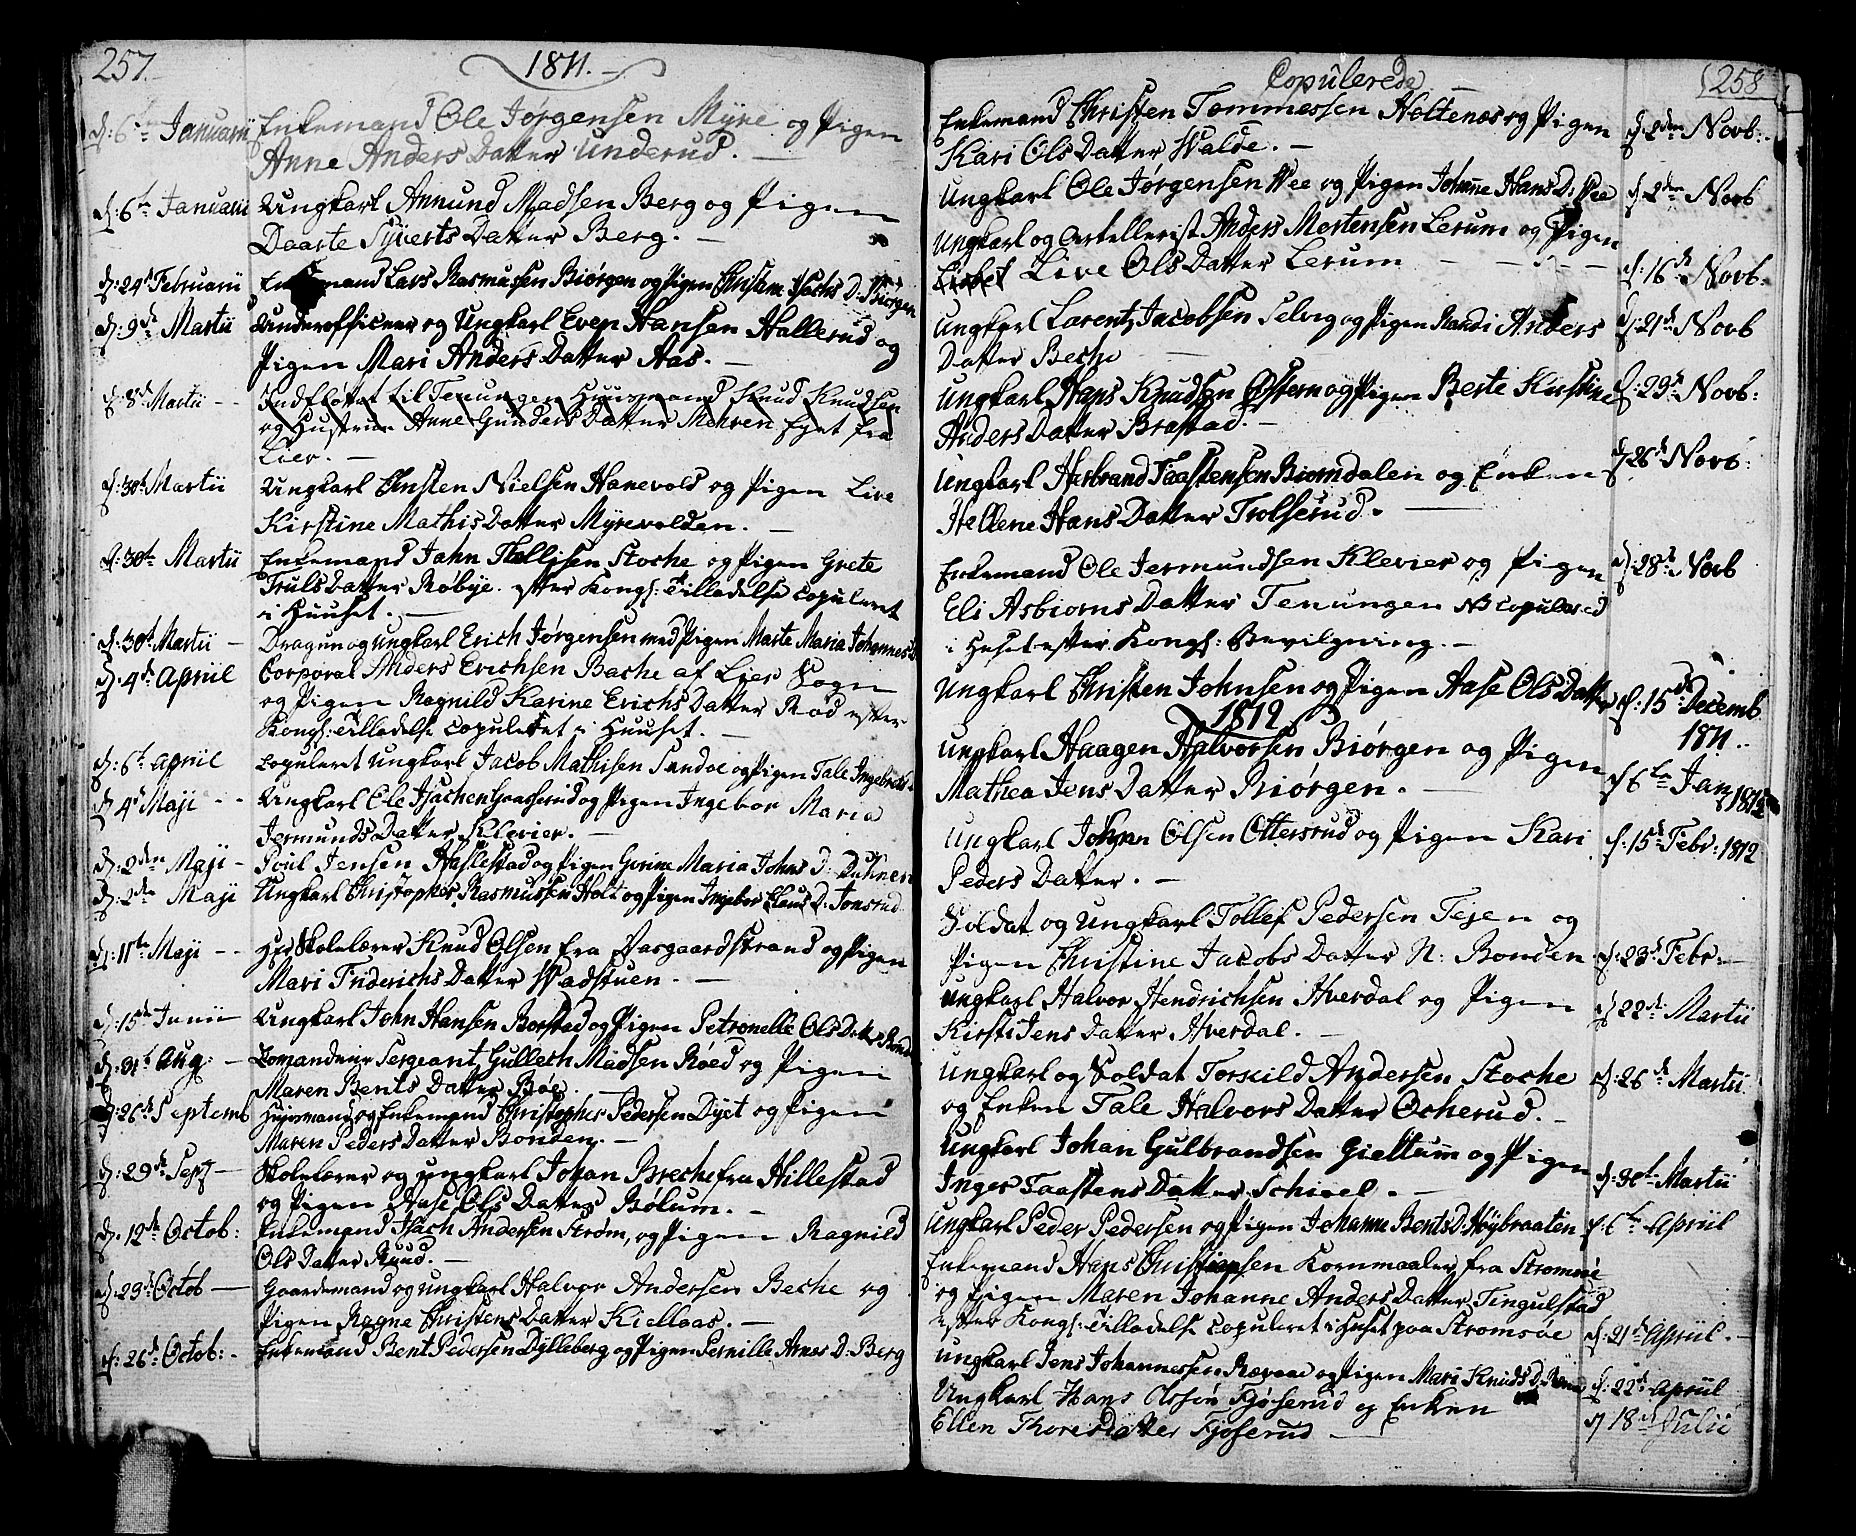 257.
1811.
d: 6te Januarii Enkemand Ole Jørgensen Myre og Pigen
Anne Anders Datter Underud. —
d: 6te Januarii Ungkarl Annund Madsen Berg og Pigen
Daarte Syverts Datter Berg. —
d: 24d Februarii Enkemand Lars Rasmussen Biørgen og Pigen Christine Isachs D: Biørgen
d: 9de Martii Underofficeer og Ungkarl Even Hansen Hallerud og
Pigen Mari Anders Datter Aas. —
d: 8de Martii - - Indfløttet til Tenungen Huusmand Knud Knudsen
og Hustrue Anne Gunders Datter Mehren fra
Lier. —
d: 30t Martii Ungkarl Christen Nielsen Hanevold og Pigen Live
Kirstine Mathis Datter Myrevolden. —
d: 30te Martii Enkemand Jahn Stoche og Pigen Grete
Truls Datter Røbye. efter Kongl: Tilladelse copuleret
i Huuset. —
d: 30t Martii — Dragun og Ungkarl Erich Jørgensen med Pigen Marte Maria Johannes D
d: 4de Apriil Corporal Anders Erichsen Bache af Lier Sogn
og Pigen Ragnild Karine Erichs Datter Rød efter
Kongl: Tilladelse copuleret i Huuset. —
d: 6te Apriil copuleret Ungkarl Jacob Mathisen Sandøe og Pigen Tale Ingebrets D
d: 4de Maji - - Ungkarl Ole Isachen Graasserud og Pigen Ingebor Maria
Jermunds Datter Klevier. —
d: 2den Maji - Poul Jensen Haslestad og Pigen Gurine Maria Johns D:
d: 2den Maji Ungkarl Christopher Rasmussen Holt og Pigen Ingebor Claus D: Tonsrud
d: 11te Maji - - Hr Skolelærer Knud Olsen fra Aasgaardstrand og Pigen
Mari Friderichs Datter Wadstuen. —
d: 15de Junii Ungkarl John Hansen Borstad og Pigen Petronelle Ols Datter
d: 31t Aug: — Comandeur Sergeant Gulleth Madsen Røed og Pigen
Maren Bents Datter Bøe. —
d: 26de Septemb Huusmand og Enkemand Christopher Pedersen Dyet og Pigen
Maren Peders Datter Bonden. —
d: 29de Sept — Skolelærer og Ungkarl Johan Breche fra Hillestad
og Pigen Aase Ols Datter Bølum. —
d: 12de Octob: Enkemand Isach Andersen Strøm, og Pigen Ragnild
Ols Datter Ruud. —
d: 23de Octob — Gaardemand og Ungkarl Halvor Andersen Beche og
Pigen Ragne Christens Datter Kiellaas. —
d: 26de Octob: - Enkemand Bent Pedersen Dylleberg og Pigen Pernille Arnes D: Berg
Copulerede
258
Enkemand Christen Tommessen Holtenæs og Pigen d: 2den Novb:
Kari Ols Datter Walde. —
Ungkarl Ole Jørgensen Wee og Pigen Johanne Hans D: Wee d: 2den Novb
Ungkarl og Artellerist Anders Mortensen Lerum og Pigen
Lisbet Live Ols Datter Lerum - - - - d: 16de Novb:
Ungkarl Larentz Jacobsen Selvig og Pigen Randi Anders d: 21de Novb
Datter Beche —
Ungkarl Hans Knudsen Østern og Pigen Berte Kirstine d: 23de Novb:
Anders Datter Brastad. —
d 26de Novb:
Ungkarl Herbrand Taastensen Biorndalen og Enken
Hellene Hans Datter Trolserud. —
Enkemand Ole Jermundsen Klevier og Pigen d: 28de Novb
Eli Asbiorns Datter Tenungen NB copulered
i Huset efter Kongl: Bevilgning. —
Ungkarl Christen Johnsen og Pigen Aase Ols Datter d: 15de Decemb
1811..
1812
Ungkarl Haagen Halvorsen Biørgen og Pigen
Mathea Jens Datter Biørgen. — d 6te Jan 1812
Ungkarl Johan Olsen Ottersrud og Pigen Kari d: 15de Febr: 1812
Peders Datter. —
Soldat og Ungkarl Tollef Pedersen Tejen og
Pigen Christine Jacobs Datter N: Bonden d: 23de Febr: —
Ungkarl Halvor Hendrichsen Hverdal og Pigen d: 22de Martii
Kirsti Jens Datter Hverdal. —
Ungkarl og Soldat Torskild Andersen Stoche d: 26de Martii
og Enken Tale Halvors Datter Ocherud. —
Ungkarl Johan Gulbrandsen Gieltum og Pigen
Inger Taastens Datter Schivel. — d: 30t Martii
Ungkarl Peder Pedersen og Pigen Johanne Bents D. Høybraaten d: 6te Apriil
Enkemand Hans Christiansen Kornmaaler fra Stromsøe
og Pigen Maren Johanne Anders Datter Tingulstad
efter Kongl: Tilladelse copuleret i Huset paa Stromsøe d: 21de Apriil —
Ungkarl Jens Johannessen Rævaae og Pigen Mari Knuds D: d: 22de Apriil
Ungkarl Hans Olssøn Fjøserud og Enken
Ellen Thoresdatter Fjøserud — d 18de Julii